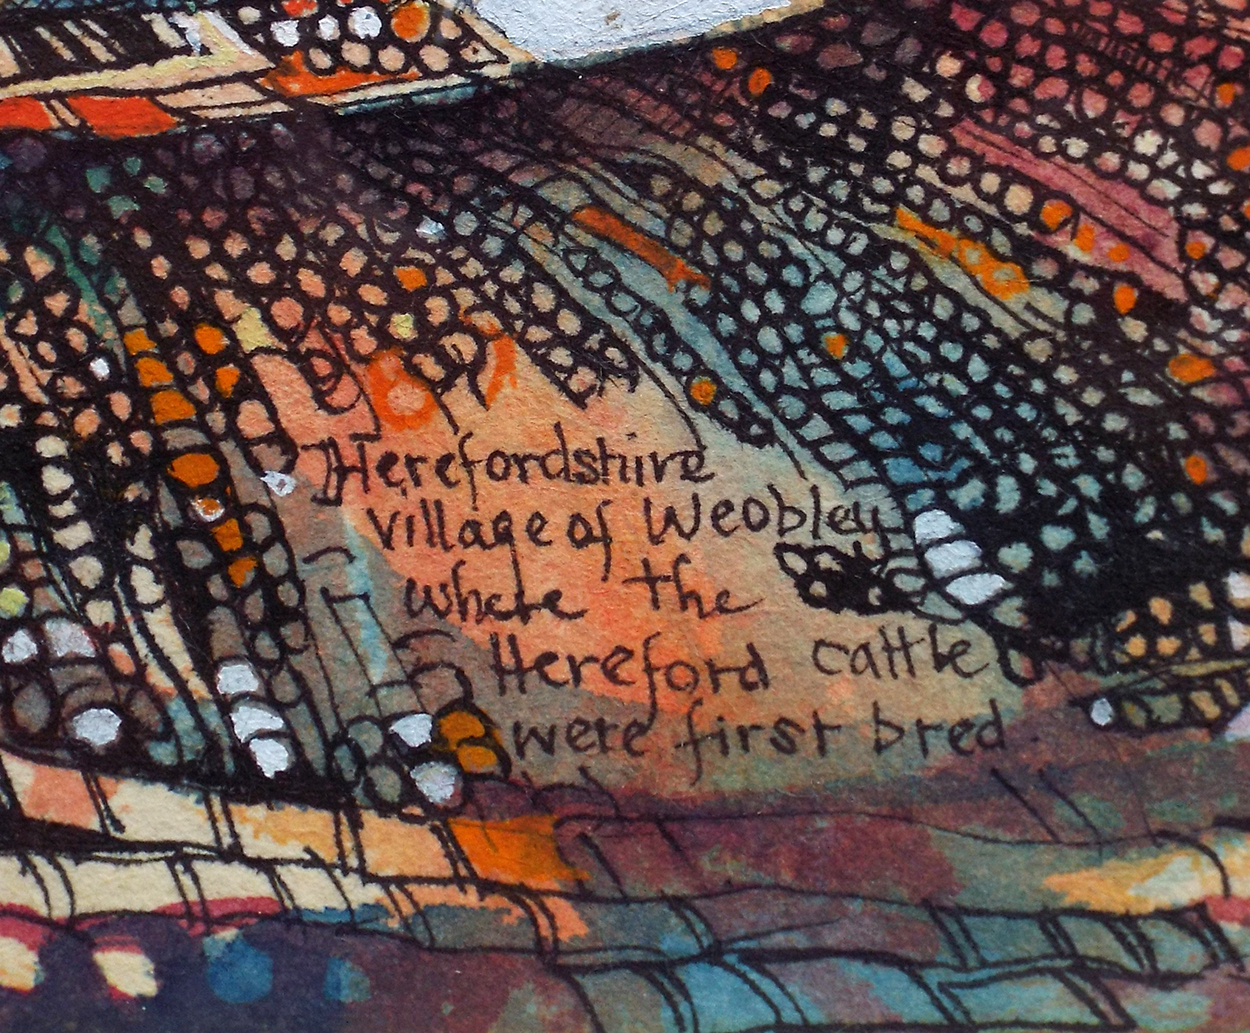 Herefordshire
village of Weobley
where the
Hereford cattle
were first bred.